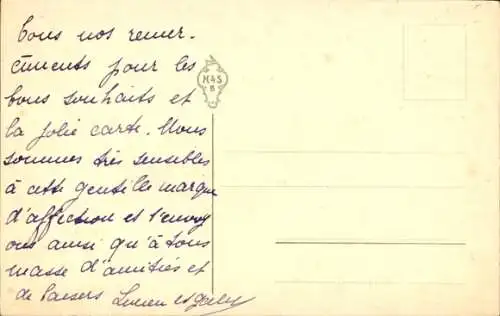 Tous nos remer-
ciments pour les
bons souhaits et
la jolie carte. Nous
sommes très sensibles
à cette gentille marque
d'affection et t'envoy
ons ainsi qu'à tous
masse d'amitiés et
de baisers Lucien et
H&S
B